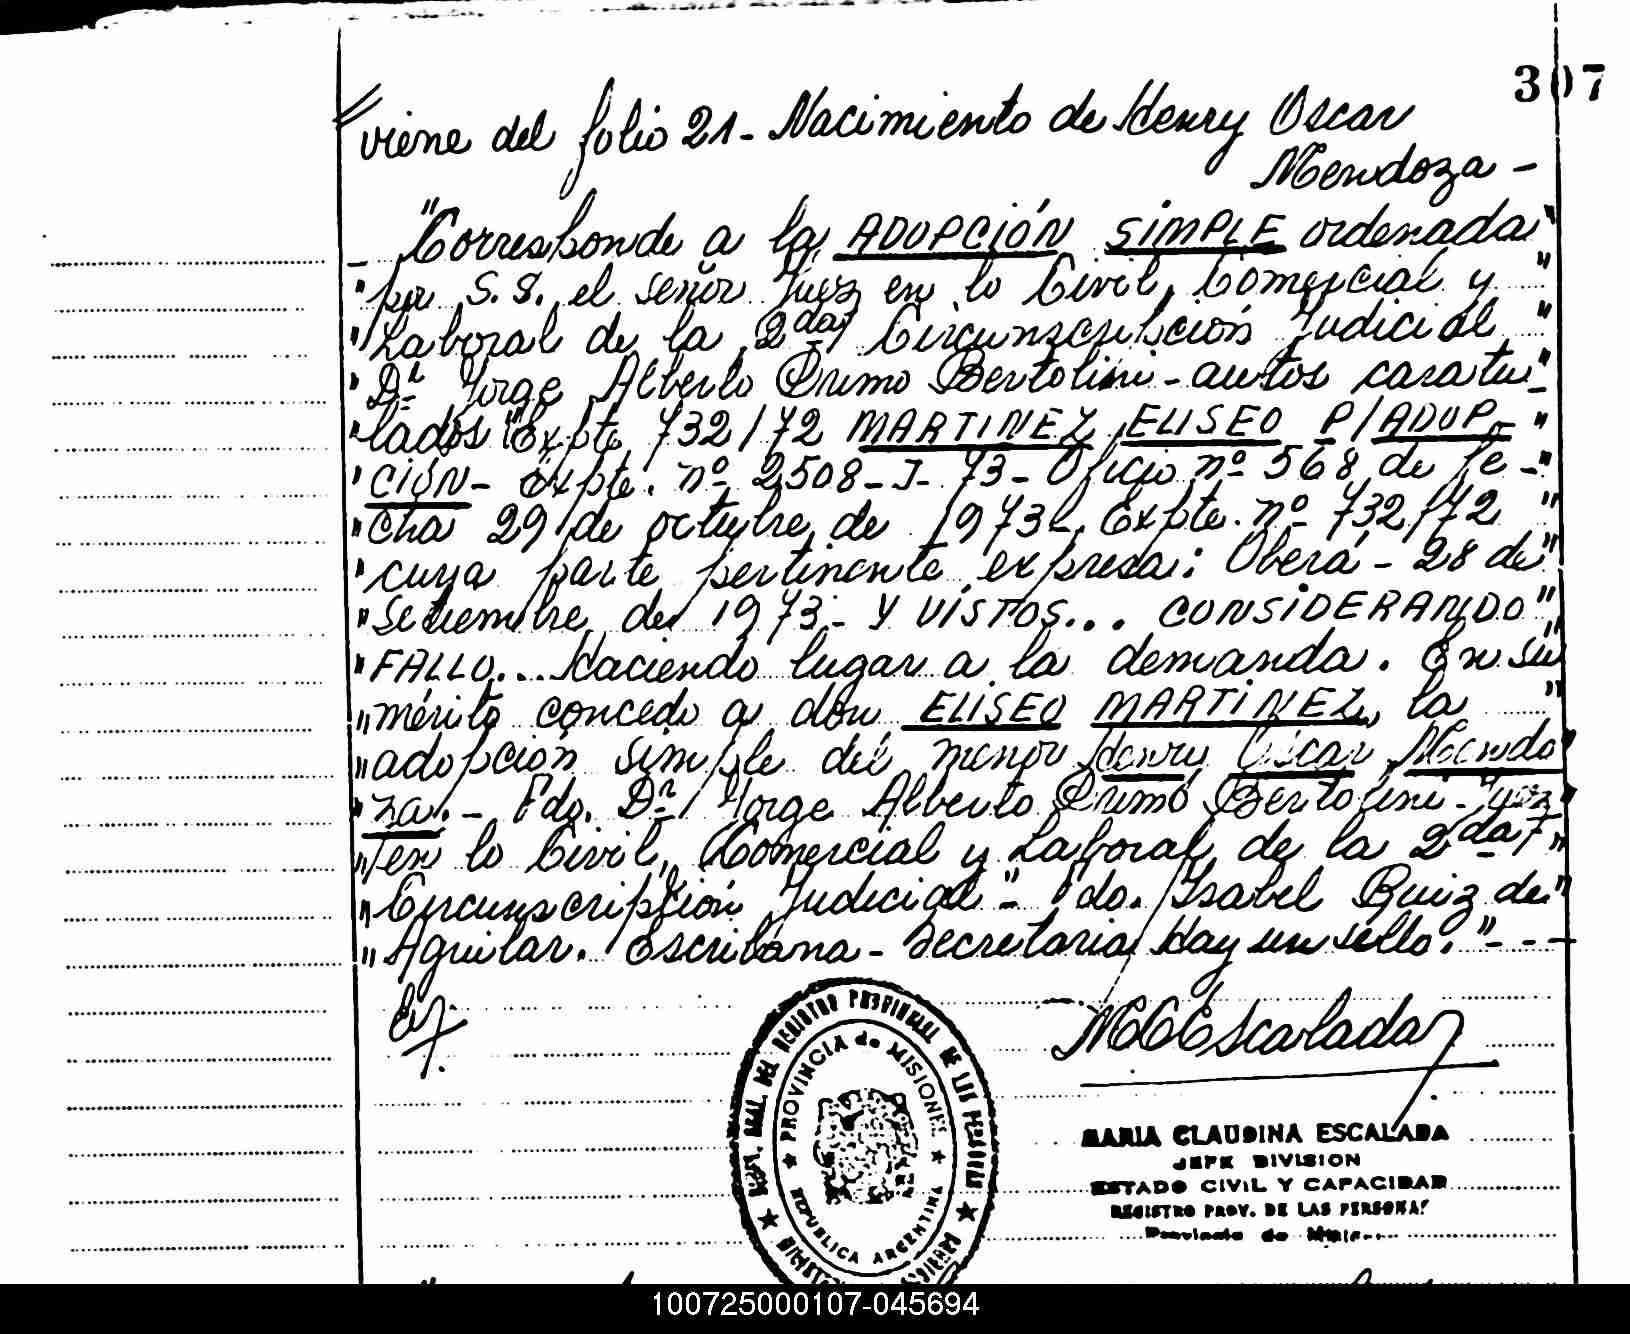 307
// viene del folio 21 - Nacimiento de Henry Oscar
Mendoza -
_ "Corresponde a la ADOPCIÓN SIMPLE ordenada"
" por S. S. el señor Juez en lo Civil, Comercial y "
" Laboral de la 2da/ Circunscripción Judicial "
" Dr. Jorge Alberto Primo Bertolini - autos caratu- "
" lados "Expte 732/72 MARTINEZ ELISEO P/ADOP- "
" CIÓN - Expte. nº 2508 - J - 73 - Oficio nº 568 de fe- "
" cha 29 de octubre de 1973 - Expte. nº 732/72 "
" cuya parte pertinente expresa: Oberá - 28 de "
" Setiembre de 1973 - Y VISTOS... CONSIDERANDO "
" FALLO... Haciendo lugar a la demanda. En su "
" mérito concedo a don ELISEO MARTINEZ, la "
" adopción simple del menor Henry Oscar Mendo "
" za. - Fdo. Dr. Jorge Alberto Primo Bertolini - Juez "
" en lo Civil, Comercial y Laboral de la 2da/ "
" Circunscripción Judicial" - Fdo. Isabel Ruiz de "
" Aguilar. Escribana - Secretaria Hay un sello." - - -
MCEscalada
REGISTRO PROVINCIAL DE LAS PERSONAS
PROVINCIA de MISIONES
REPUBLICA ARGENTINA
MARIA CLAUDINA ESCALADA
JEFE DIVISION
ESTADO CIVIL Y CAPACIDAD
REGISTRO PROV. DE LAS PERSONAS
Provincia de
100725000107-045694